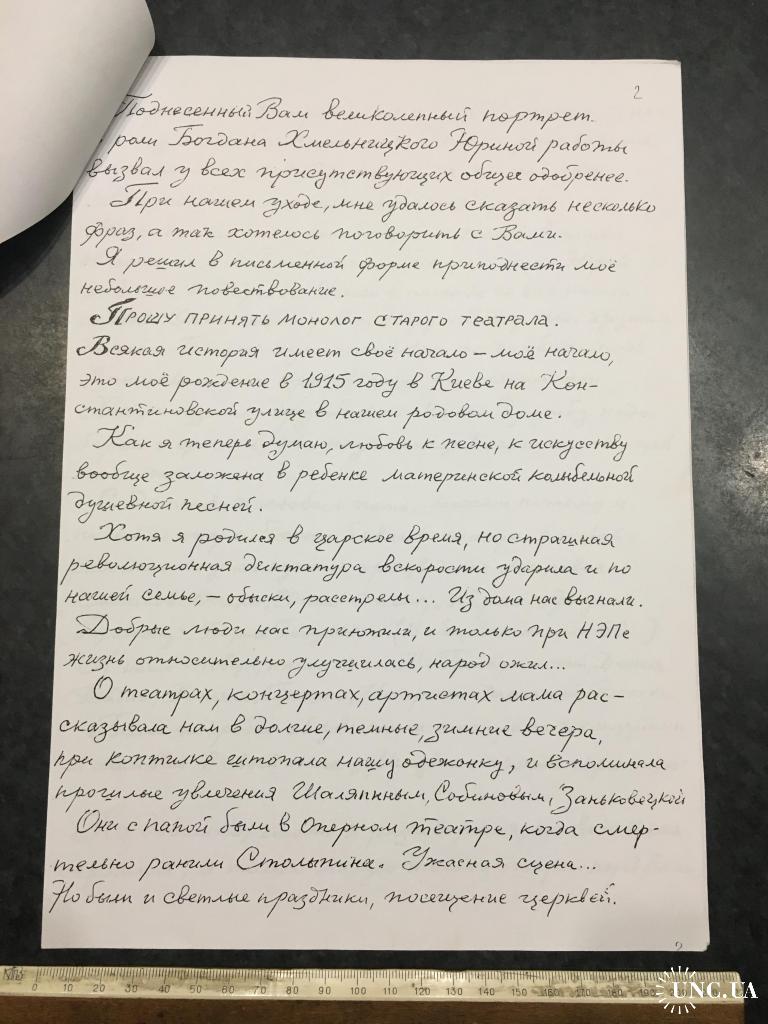 2
Поднесенный Вам великолепный портрет
роли Богдана Хмельницкого Юриной работы
вызвал у всех присутствующих общее одобренее.
При нашем уходе, мне удалось сказать несколько
фраз, а так хотелось поговорить с Вами.
Я решил в письменной форме приподнести моё
небольшое повествование.
Прошу принять монолог старого театрала.
Всякая история имеет своё начало – моё начало,
это моё рождение в 1915 году в Киеве на Кон-
стантиновской улице в нашем родовом доме.
Как я теперь думаю, любовь к песне, к искусству
вообще заложена в ребенке материнской колыбельной
душевной песней.
Хотя я родился в царское время, но страшная
революционная диктатура вскорости ударила и по
нашей семье, – обыски, расстрелы... Из дома нас выгнали.
Добрые люди нас приютили, и только при НЭПе
жизнь относительно улучшилась, народ ожил...
О театрах, концертах, артистах мама рас-
сказывала нам в долгие, темные, зимние вечера,
при коптилке штопала нашу одежонку, и вспоминала
прошлые увлечения Шаляпиным, Собиновым, Заньковецкой
Они с папой были в Оперном театре, когда смер-
тельно ранили Столыпина. Ужасная сцена...
Но были и светлые праздники, посещение церквей.
0 10 20 30 40 50 60 70 80 90 100 110 120 130 140 150 160 170 180 190
UNC.UA